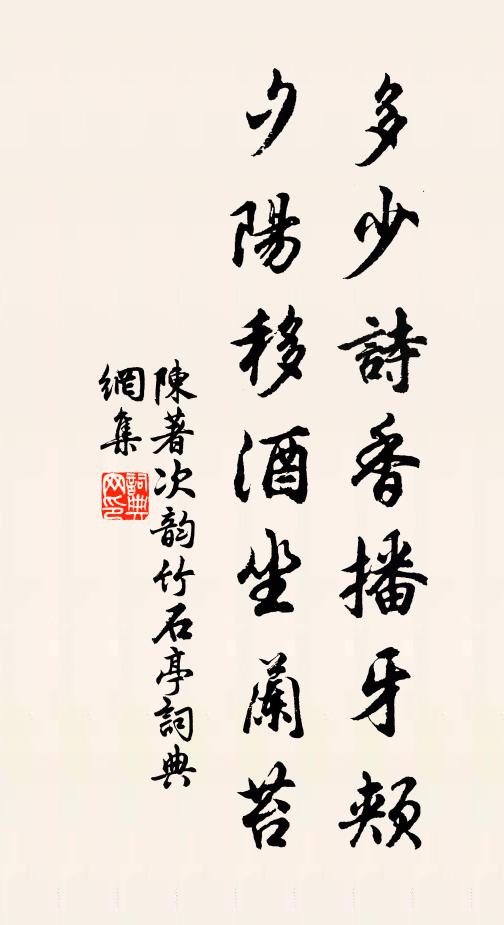 多少詩香播牙頰
夕陽移酒坐蘭苔
陳著次韵竹石亭詞典
網集
詞典网印